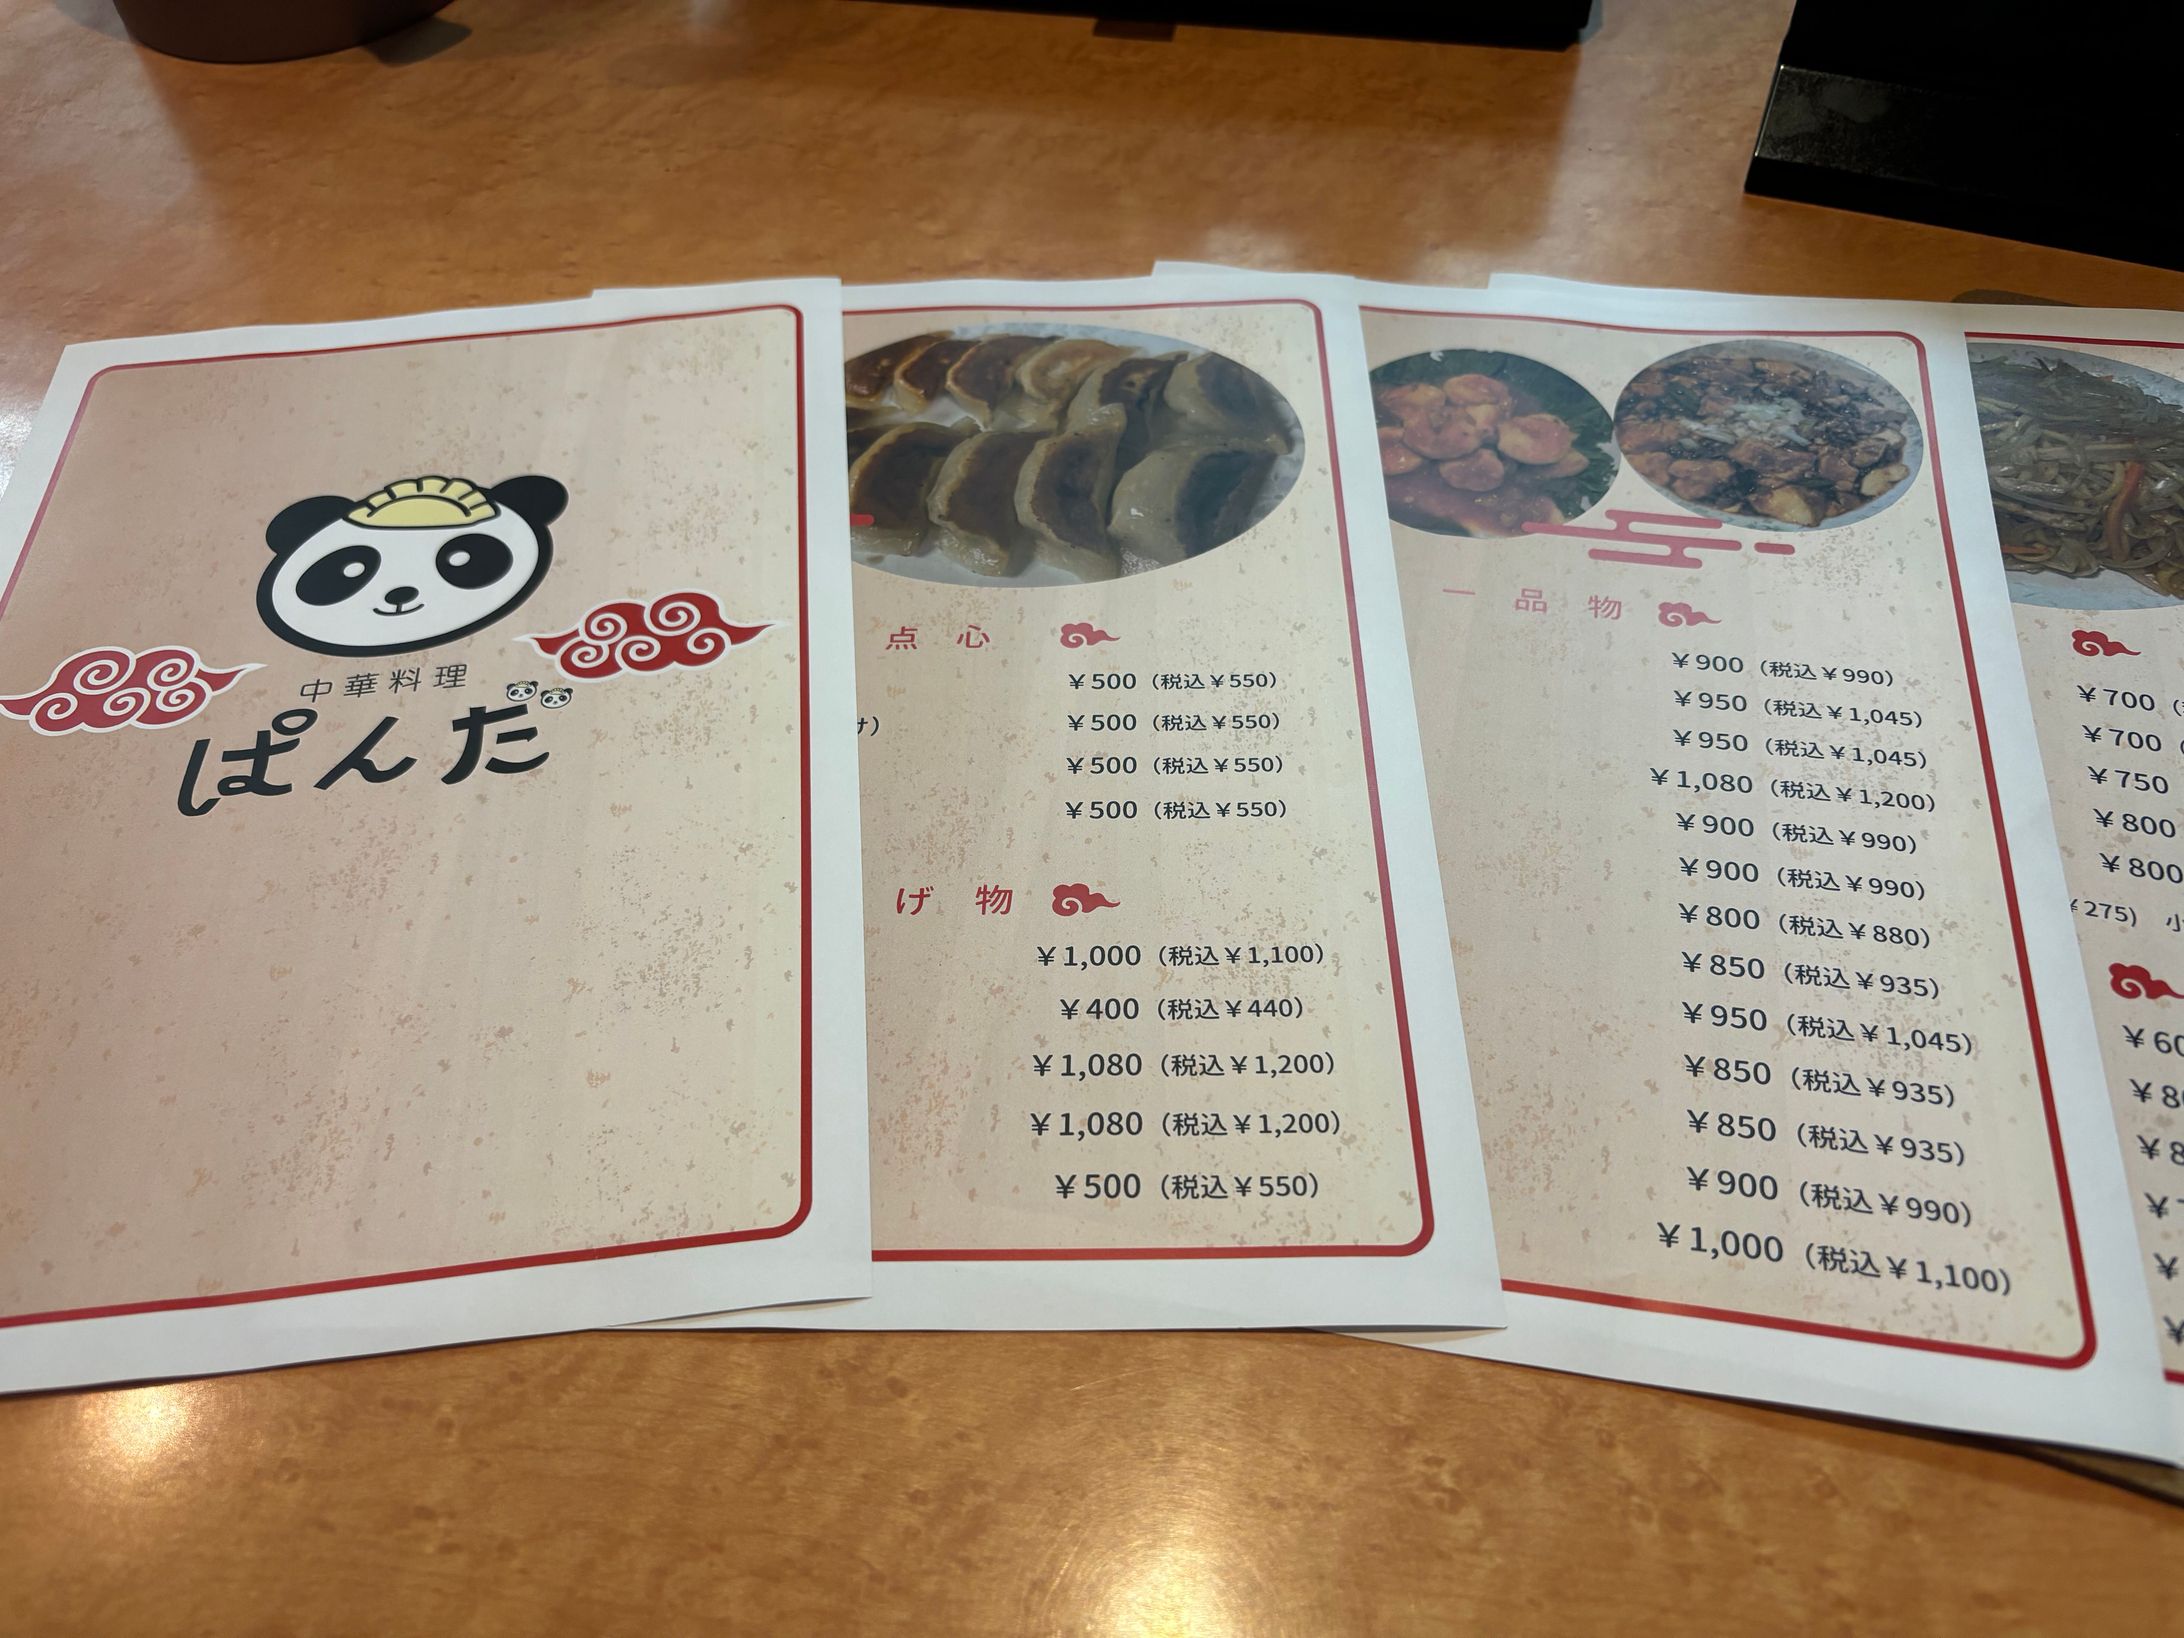 中華料理
ぱんだ
点心
¥500（税込¥550）
け）
¥500（税込¥550）
¥500（税込¥550）
¥500（税込¥550）
げ物
¥1,000（税込¥1,100）
¥400（税込¥440）
¥1,080（税込¥1,200）
¥1,080（税込¥1,200）
¥500（税込¥550）
一品物
¥900（税込¥990）
¥950（税込¥1,045）
¥950（税込¥1,045）
¥1,080（税込¥1,200）
¥900（税込¥990）
¥900（税込¥990）
¥800（税込¥880）
¥850（税込¥935）
¥950（税込¥1,045）
¥850（税込¥935）
¥850（税込¥935）
¥900（税込¥990）
¥1,000（税込¥1,100）
¥700
¥700
¥750
¥800
¥800
¥275） 小